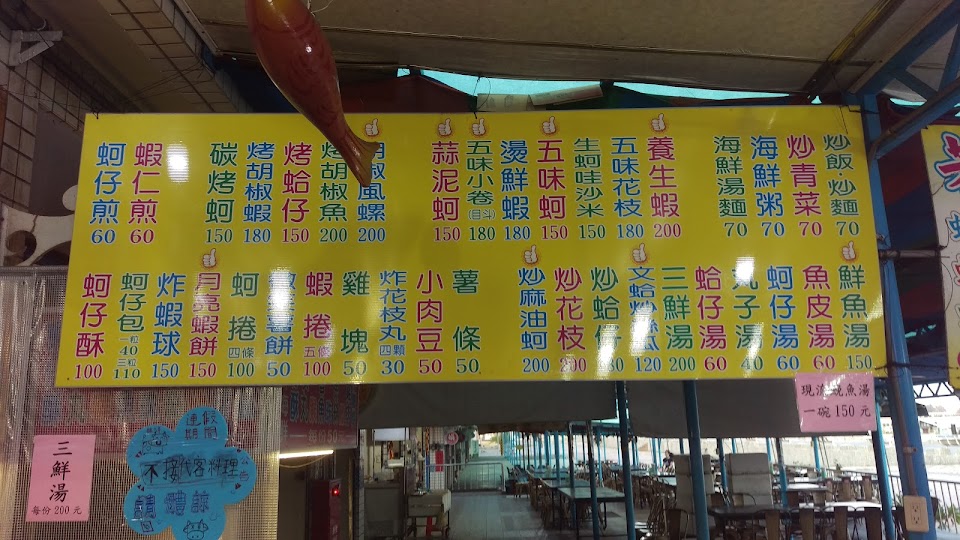 蚵仔煎 60
蝦仁煎 60
碳烤蚵 150
烤胡椒蝦 180
烤蛤仔 150
烤胡椒魚 200
胡椒風螺 200
蒜泥蚵 150
五味小卷(目斗) 180
燙鮮蝦 180
五味蚵 150
生蚵哇沙米 150
五味花枝 180
養生蝦 200
海鮮湯麵 70
海鮮粥 70
炒青菜 70
炒飯·炒麵 70
蚵仔酥 100
蚵仔包 一粒40 三粒110
炸蝦球 150
月亮蝦餅 150
蚵捲 四條 100
餅 50
蝦捲 五條 100
雞塊 50
炸花枝丸 四顆 30
小肉豆 50
薯條 50
炒麻油蚵 200
炒花枝 200
炒蛤仔 180
文蛤炒絲瓜 120
三鮮湯 200
蛤仔湯 60
丸子湯 40
蚵仔湯 60
魚皮湯 60
鮮魚湯 150
現流魚湯
一碗150元
三鮮湯
每份200元
連假
期間
不接代客料理
請體諒